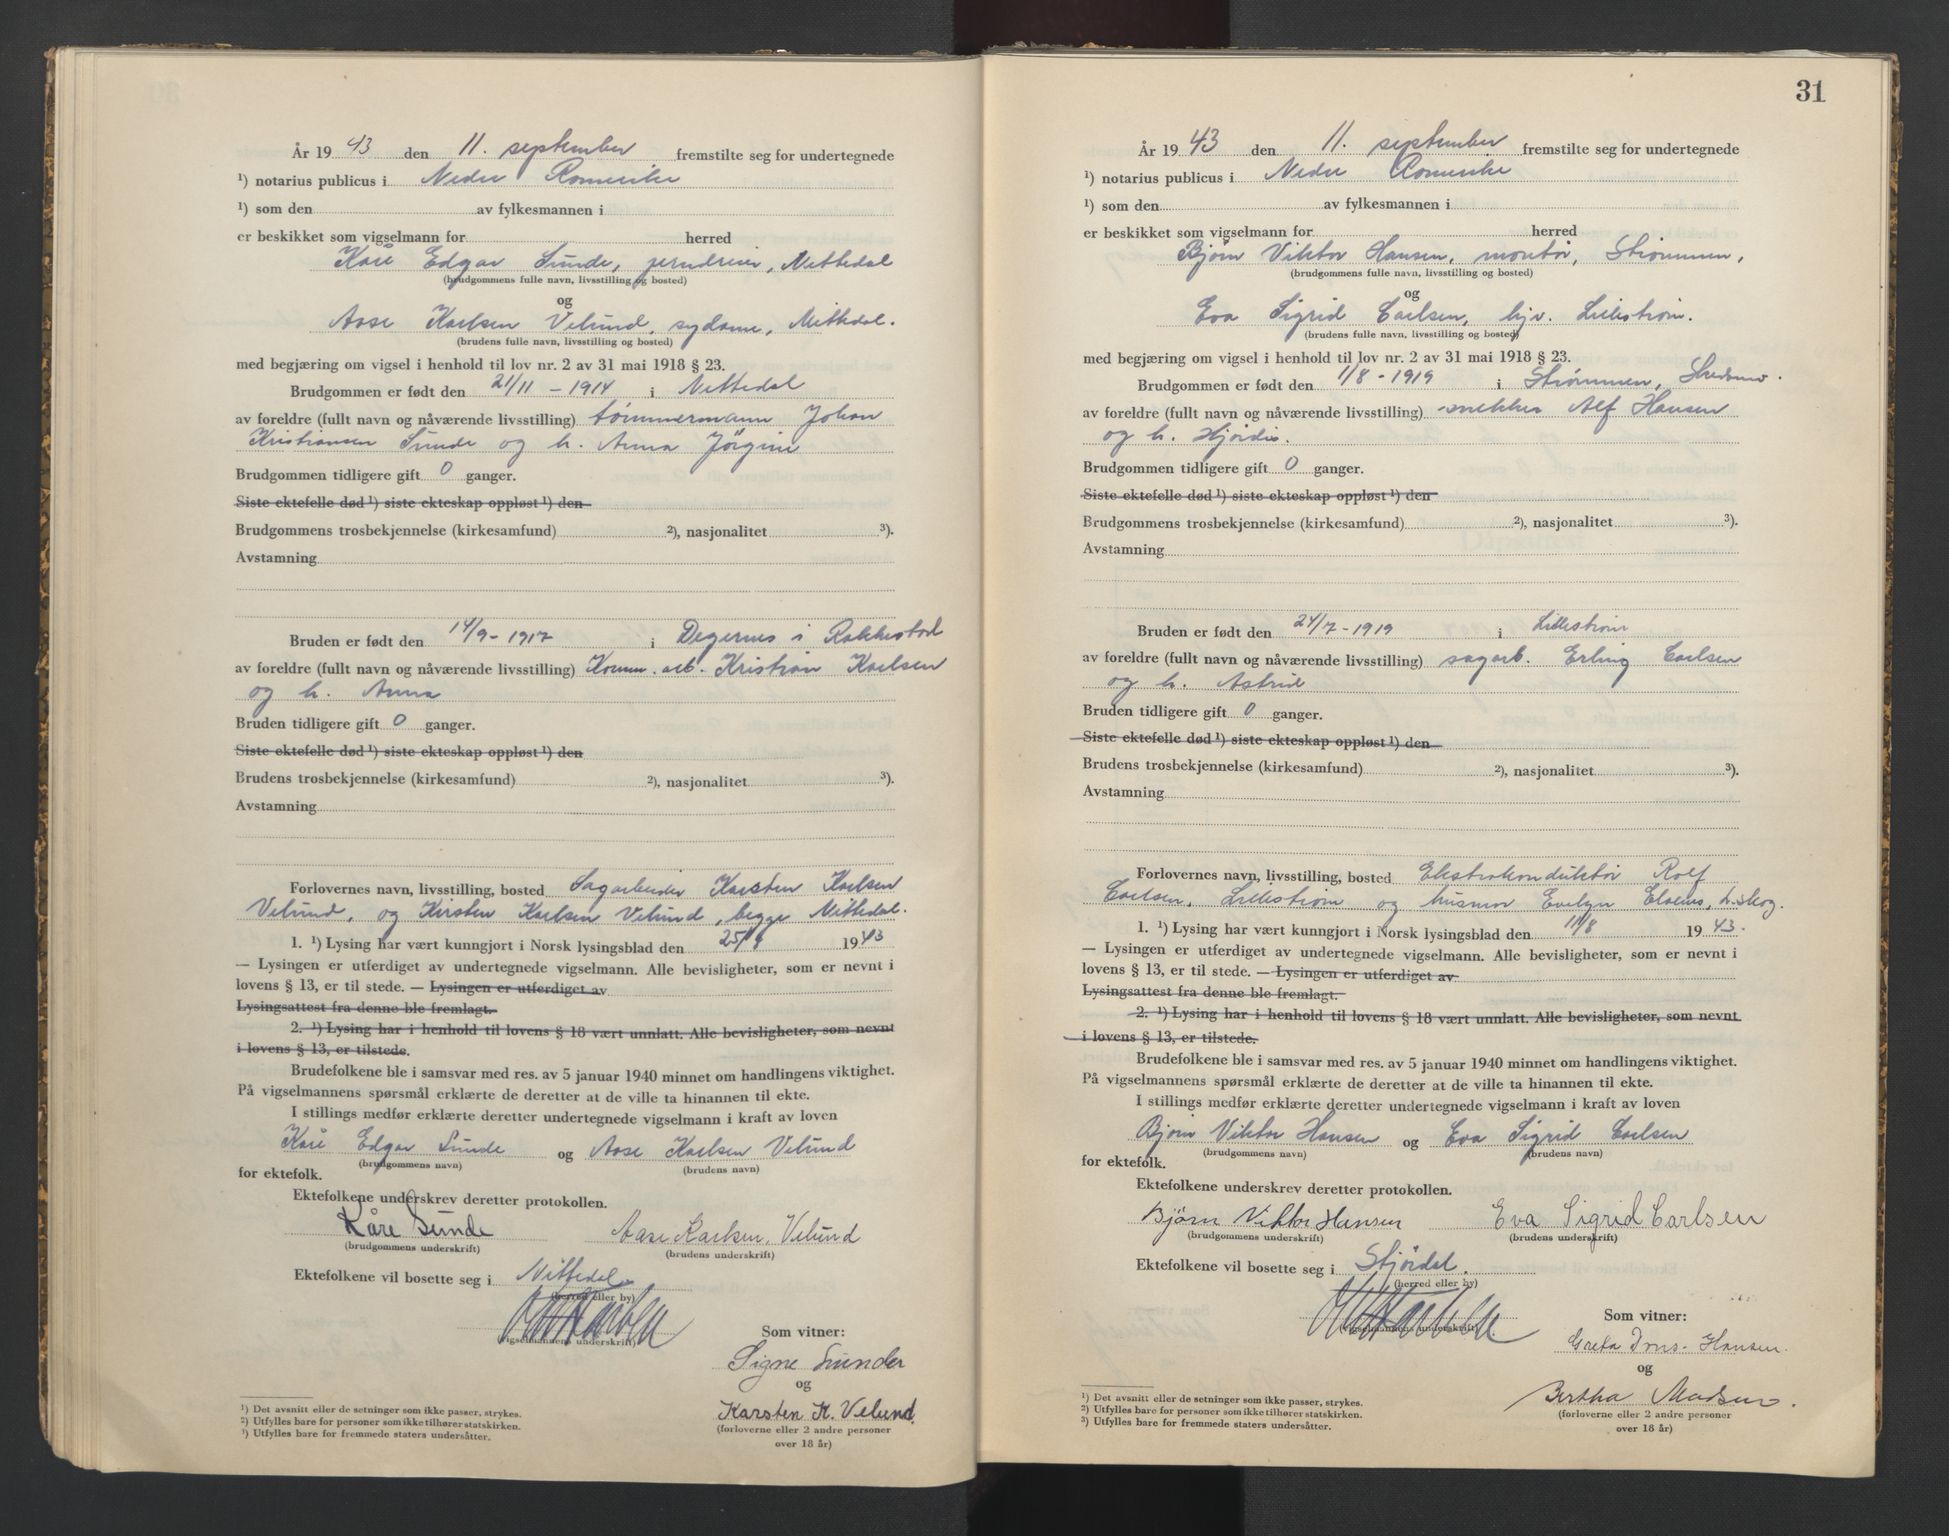 År 19 43 den 11. september fremstilte seg for undertegnede
¹) notarius publicus i Nedre Romerike
¹) som den av fylkesmannen i
er beskikket som vigselmann for herred
Kåre Edgar Sunde, jerndreier, Nittedal
(brudgommens fulle navn, livsstilling og bosted)
og
Aase Karlsen Velund, sydame, Nittedal.
(brudens fulle navn, livsstilling og bosted)
med begjæring om vigsel i henhold til lov nr. 2 av 31 mai 1918 § 23.
Brudgommen er født den 21/11 - 1914 i Nittedal
av foreldre (fullt navn og nåværende livsstilling) tømmermann Johan
Kristiansen Sunde og h. Anna Jörgine
Brudgommen tidligere gift 0 ganger.
Siste ektefelle død ¹) siste ekteskap oppløst ¹) den
Brudgommens trosbekjennelse (kirkesamfund) ²), nasjonalitet ³).
Avstamning
Bruden er født den 14/9 - 1917 i Degernes i Rakkestad
av foreldre (fullt navn og nåværende livsstilling) Komm. arb. Kristian Karlsen
og h. Anna
Bruden tidligere gift 0 ganger.
Siste ektefelle død ¹) siste ekteskap oppløst ¹) den
Brudens trosbekjennelse (kirkesamfund) ²), nasjonalitet ³).
Avstamning
Forlovernes navn, livsstilling, bosted Sagarbeider Karsten Karlsen
Velund, og Kirsten Karlsen Velund, begge Nittedal.
1. ¹) Lysing har vært kunngjort i Norsk lysingsblad den 19 43
— Lysingen er utferdiget av undertegnede vigselmann. Alle bevisligheter, som er nevnt i
lovens § 13, er til stede. — Lysingen er utferdiget av
Lysingsattest fra denne ble fremlagt.
2. ¹) Lysing har i henhold til lovens § 18 vært unnlatt. Alle bevisligheter, som nevnt
i lovens § 13, er tilstede.
Brudefolkene ble i samsvar med res. av 5 januar 1940 minnet om handlingens viktighet.
På vigselmannens spørsmål erklærte de deretter at de ville ta hinannen til ekte.
I stillings medfør erklærte deretter undertegnede vigselmann i kraft av loven
Kåre Edgar Sunde og Aase Karlsen Velund
(brudgommens navn) (brudens navn)
for ektefolk.
Ektefolkene underskrev deretter protokollen.
Kåre Sunde Aase Karlsen Velund
(brudgommens underskrift) (brudens underskrift)
Ektefolkene vil bosette seg i Nittedal
(herred eller by)
(vigselmannens underskrift)
Som vitner:
Signe Sunder
og
Karsten K. Velund.
(forloverne eller 2 andre personer
over 18 år)
¹) Det avsnitt eller de setninger som ikke passer, strykes.
²) Utfylles bare for personer som ikke tilhører statskirken.
³) Utfylles bare for fremmede staters undersåtter.
31
År 19 43 den 11. september fremstilte seg for undertegnede
¹) notarius publicus i Nedre Romerike
¹) som den av fylkesmannen i
er beskikket som vigselmann for herred
Bjørn Viktor Hansen, montør, Strømmen,
(brudgommens fulle navn, livsstilling og bosted)
og
Eva Sigrid Carlsen, hjv. Lillestrøm.
(brudens fulle navn, livsstilling og bosted)
med begjæring om vigsel i henhold til lov nr. 2 av 31 mai 1918 § 23.
Brudgommen er født den 1/8 - 1919 i Strømmen, Skedsmo.
av foreldre (fullt navn og nåværende livsstilling) snekker Alf Hansen
og h. Hjördis.
Brudgommen tidligere gift 0 ganger.
Siste ektefelle død ¹) siste ekteskap oppløst ¹) den
Brudgommens trosbekjennelse (kirkesamfund) ²), nasjonalitet ³).
Avstamning
Bruden er født den 24/7 - 1919 i Lillestrøm
av foreldre (fullt navn og nåværende livsstilling) sagarb. Erling Carlsen
og h. Astrid
Bruden tidligere gift 0 ganger.
Siste ektefelle død ¹) siste ekteskap oppløst ¹) den
Brudens trosbekjennelse (kirkesamfund) ²), nasjonalitet ³).
Avstamning
Forlovernes navn, livsstilling, bosted Ekstrakonduktør Rolf
Carlsen, Lillestrøm og husmor Evelyn
1. ¹) Lysing har vært kunngjort i Norsk lysingsblad den 11/8 19 43.
— Lysingen er utferdiget av undertegnede vigselmann. Alle bevisligheter, som er nevnt i
lovens § 13, er til stede. — Lysingen er utferdiget av
Lysingsattest fra denne ble fremlagt.
2. ¹) Lysing har i henhold til lovens § 18 vært unnlatt. Alle bevisligheter, som nevnt
i lovens § 13, er tilstede.
Brudefolkene ble i samsvar med res. av 5 januar 1940 minnet om handlingens viktighet.
På vigselmannens spørsmål erklærte de deretter at de ville ta hinannen til ekte.
I stillings medfør erklærte deretter undertegnede vigselmann i kraft av loven
Bjørn Viktor Hansen og Eva Sigrid Carlsen
(brudgommens navn) (brudens navn)
for ektefolk.
Ektefolkene underskrev deretter protokollen.
Bjørn Viktor Hansen Eva Sigrid Carlsen
(brudgommens underskrift) (brudens underskrift)
Ektefolkene vil bosette seg i Stjördal.
(herred eller by)
(vigselmannens underskrift)
Som vitner:
Greta - Hansen.
og
Bertha Madsen.
(forloverne eller 2 andre personer
over 18 år)
¹) Det avsnitt eller de setninger som ikke passer, strykes.
²) Utfylles bare for personer som ikke tilhører statskirken.
³) Utfylles bare for fremmede staters undersåtter.